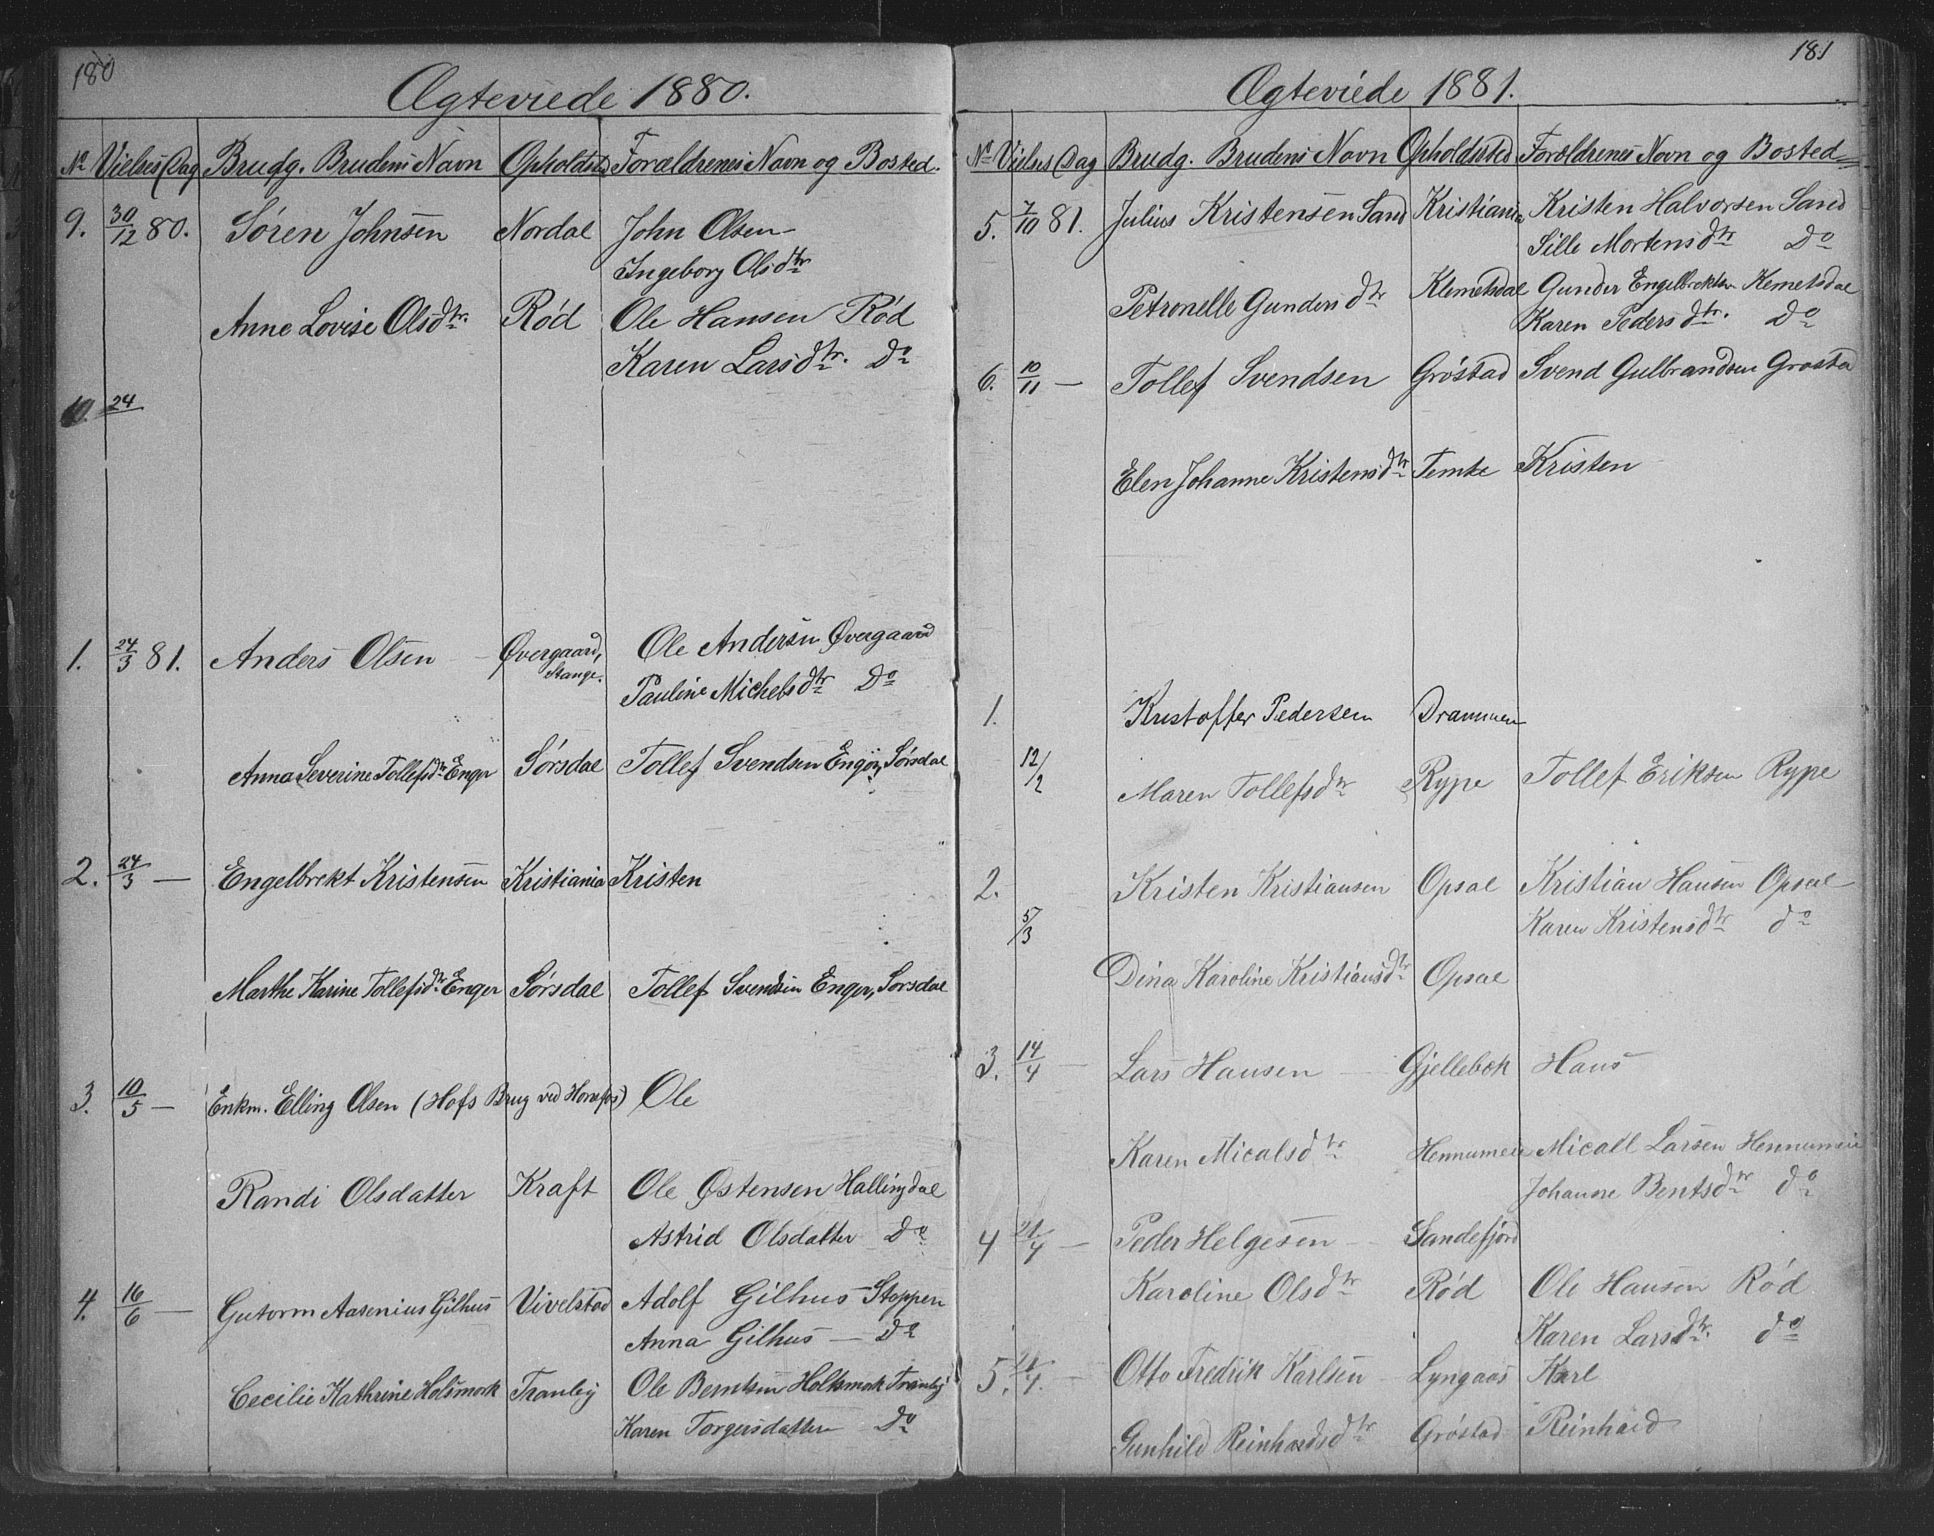 180
Ægteviede 1880.
No Vielses Dag Brudg. Brudens Navn Opholdsted Forældrenes Navn og Bosted.
9. 30/12 80. Søren Johnsen Nordal John Olsen
Ingeborg Olsdtr
Anne Lovise Olsdtr. Rød Ole Hansen Rød
Karen Larsdtr. Do
10. 24
1. 24/3 81. Anders Olsen Øvergaard, Ole Andersen Øvergaard
Stange.
Pauline Michelsdtr Do
Anna Severine Tollefsdtr Enger Sørsdal Tollef Svendsen Enger, Sørsdal
2. 24/3 — Engelbrekt Kristensen Kristiania Kristen
Marthe Karine Tollefsdtr Enger Sørsdal Tollef Svendsen Enger, Sørsdal
3. 10/5 — Enkm. Elling Olsen (Hofs Brug ved Honefos) Ole
Randi Olsdatter Kraft Ole Østensen Hallingdal
Astrid Olsdatter Do
4. 16/6 — Gutorm Aasenius Gilhus Vivelstad Adolf Gilhus Stoppen
Anna Gilhus — Do
Cecilie Kathrine Holsmork Tranby Ole Berntsen Holtsmork Tranby
Karen Torgersdatter Do
181
Ægteviede 1881.
No Vielses Dag Brudg. Brudens Navn Opholdsted Forældrenes Navn og Bosted
5. 7/10 81. Julius Kristensen Sand Kristiania Kristen Halvorsen Sand
Sille Mortensdtr Do
Petronelle Gundersdtr Klemetsdal Gunder Engelbrektsen Kemetsdal
Karen Pedersdtr. Do
6. 10/11 — Tollef Svendsen Grøstad Svend Gulbrandsen Grøstad
Elen Johanne Kristensdtr Temte Kristen
1. Kristoffer Pedersen Drammen
12/2 Maren Tollefsdtr Rype Tollef Eriksen Rype
2. Kristen Kristiansen Opsal Kristian Hansen Opsal
5/3 Karen Kristensdtr do
Dina Karoline Kristiansdtr Opsal
3. 14/4 — Lars Hansen — Gjellebek Hans
Karen Micalsdtr Hennumeie Micael Larsen Hennumeie
Johanne Bentsdtr do
4 21/4 — Peder Helgesen Sandefjord
Karoline Olsdtr Rød Ole Hansen Rød
Karen Larsdtr. do
5. Otto Fredrik Karlsen Lyngaas Karl
Gunhild Reinhardsdtr Grøstad Reinhard